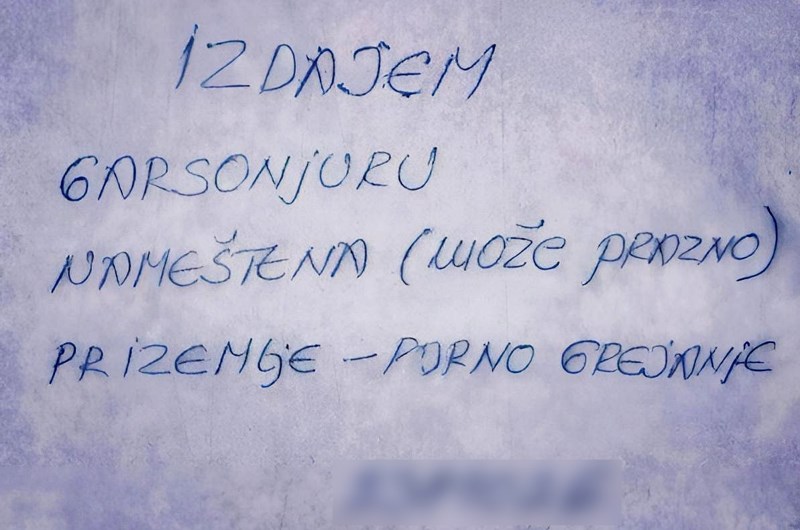 IZDAJEM
GARSONJURU
NAMEŠTENA (MOŽE PRAZNO)
PRIZEMLJE – PARNO GREJANJE